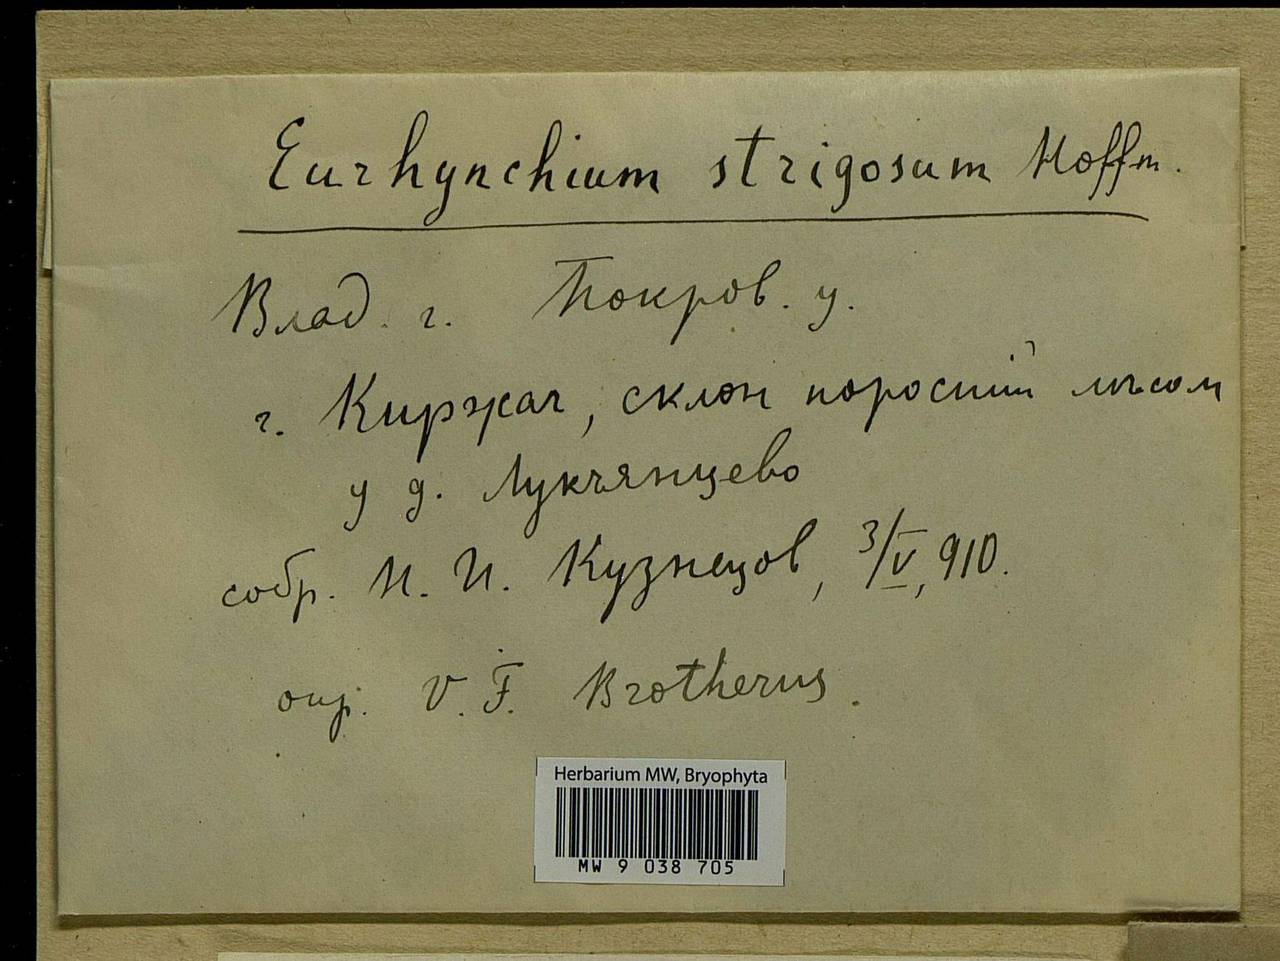 Eurhynchium strigosum Hoffm.
Влад. г. Покров. у.
г. Киржач, склон поросший лѣсом
у д. Лукъянцево
собр. Н. И. Кузнецов, 3/V, 910.
опр. V. F. Brotherus.
Herbarium MW, Bryophyta
MW 9 038 705